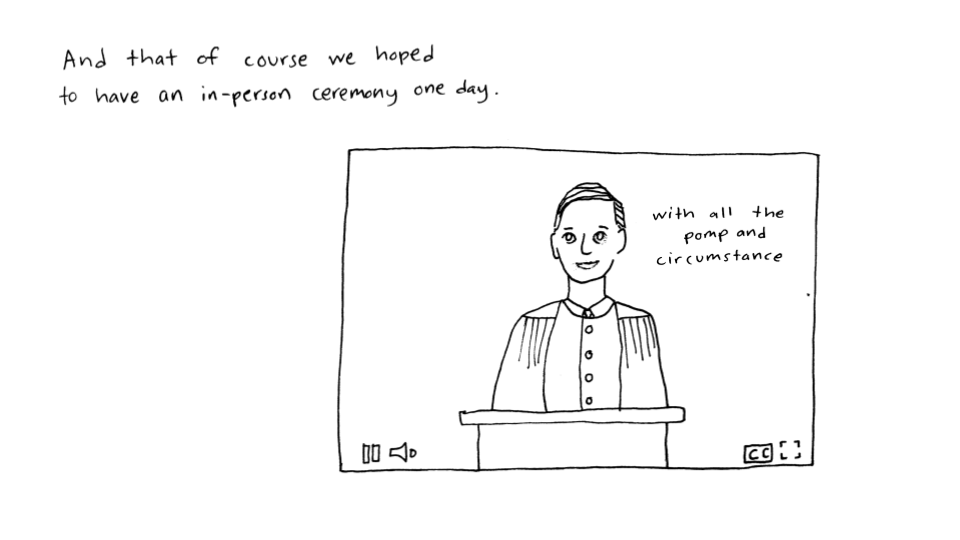 And that of course we hoped
to have an in-person ceremony one day.
with all the
pomp and
circumstance
CC